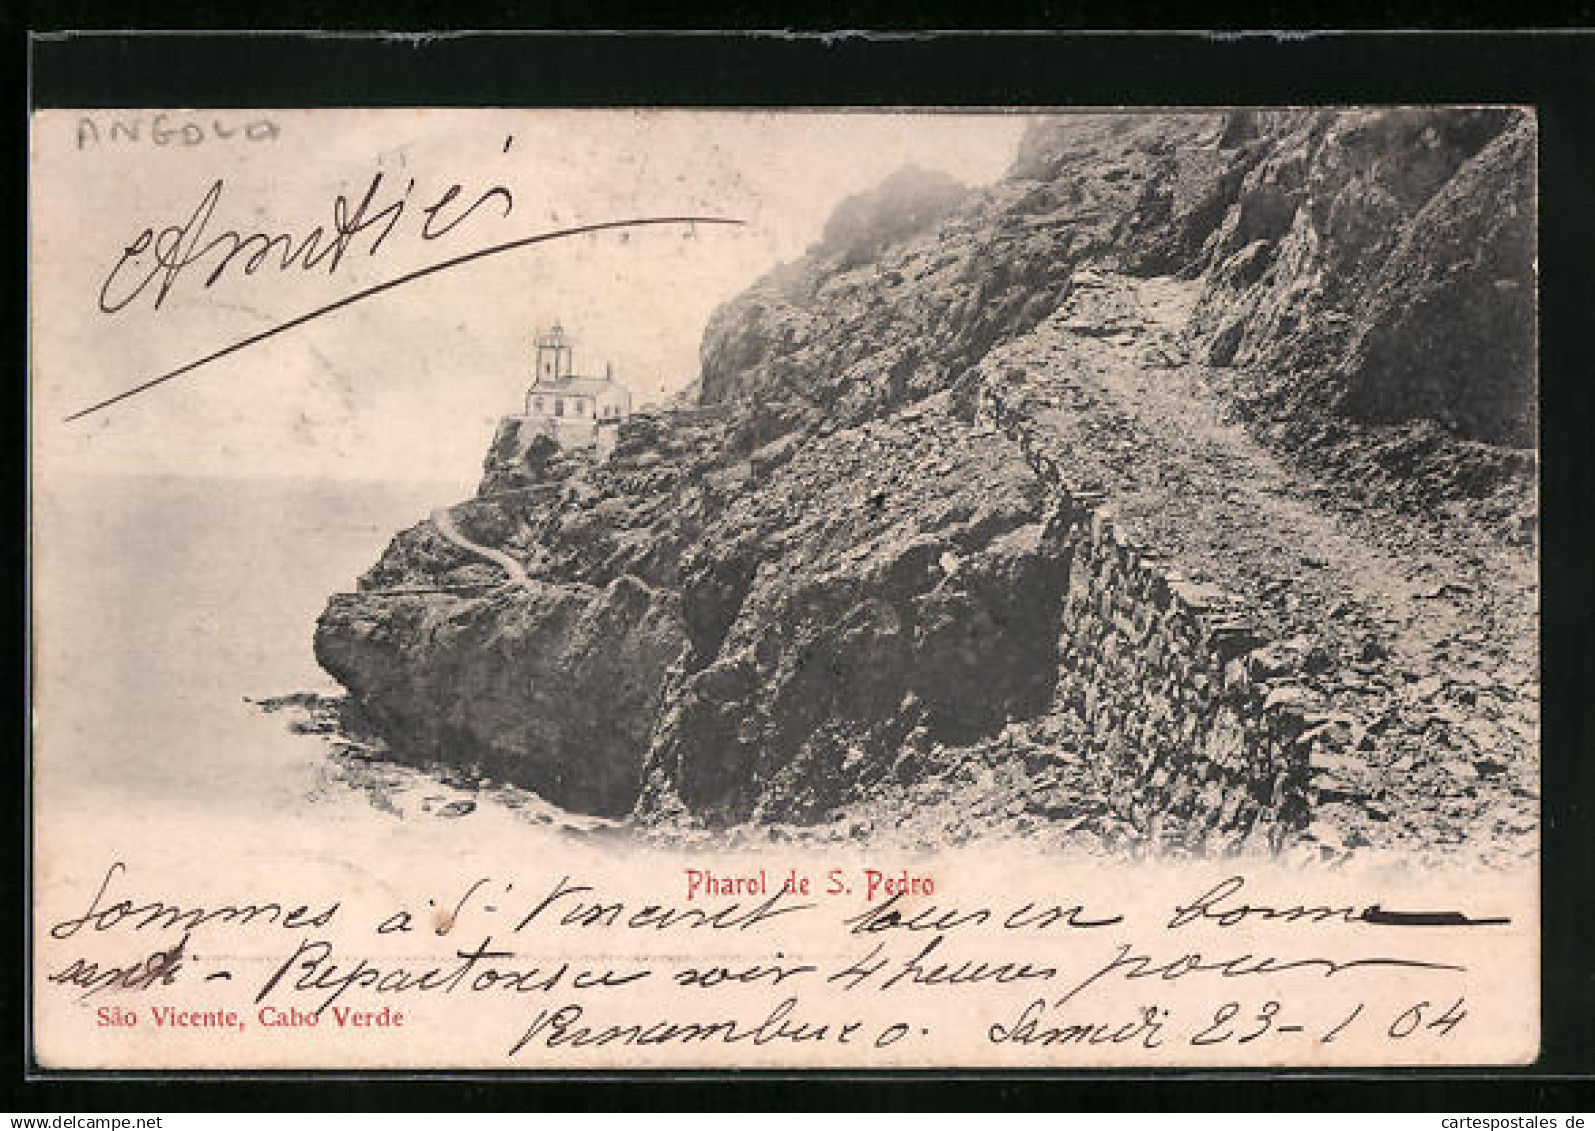 ANGOLA
Amitiés
Pharol de S. Pedro
Sommes à St Vincent tous en bonne
santé - Repartons ce soir 4 heures pour
São Vicente, Cabo Verde
Pernambuco. Samedi 23-1 04
www.delcampe.net
cartespostales de